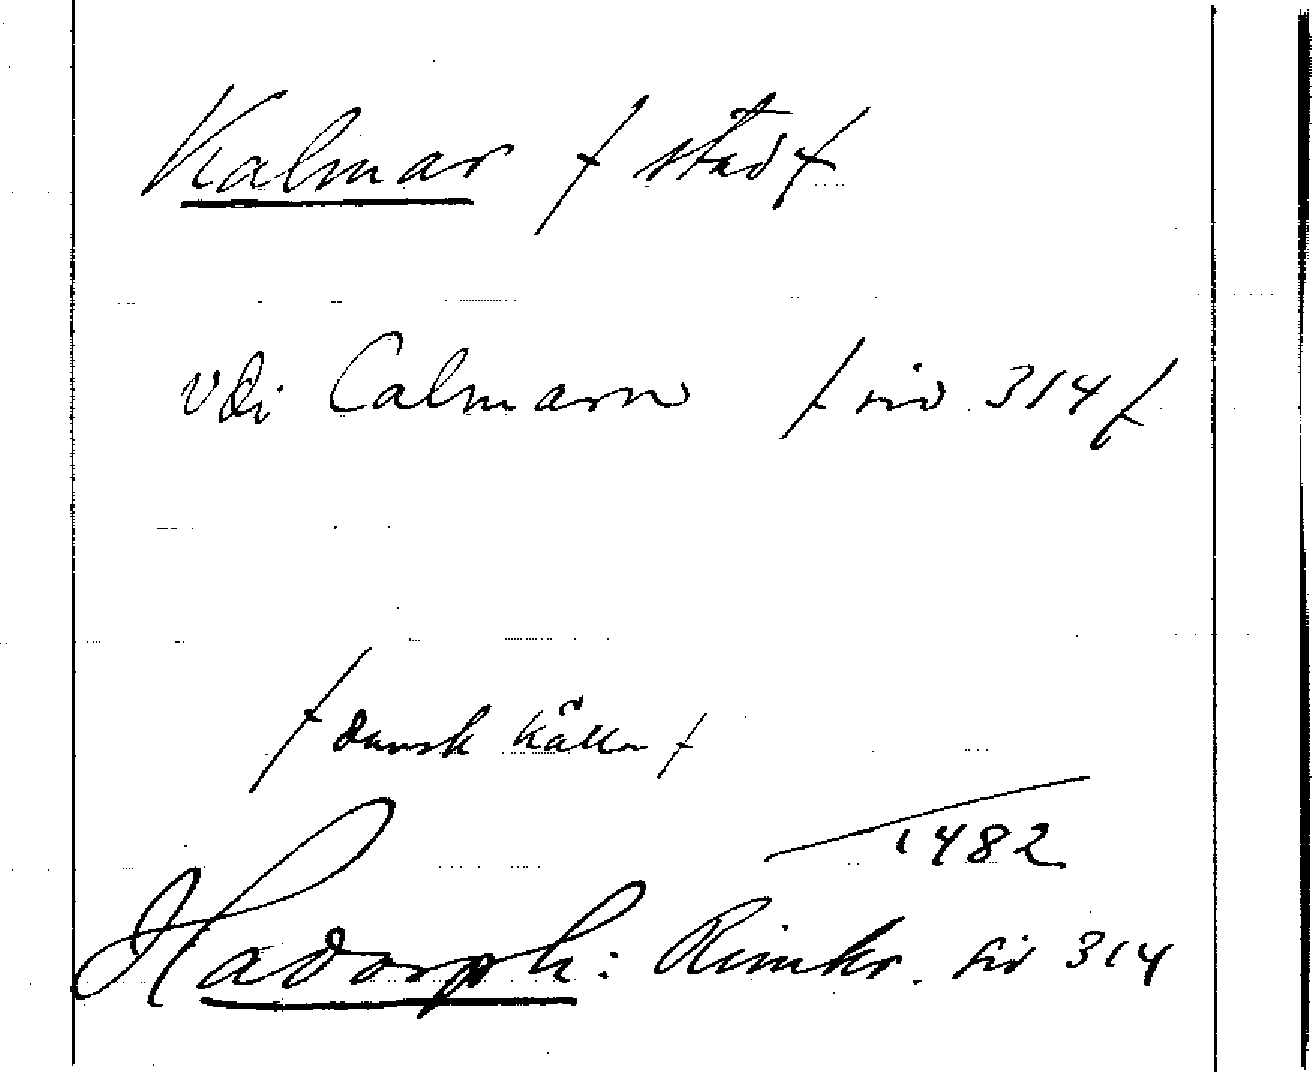 Kalmar / stad /
vdi Calmarn / sid 314 /
/ dansk källa /
1482
Hadorph: Rimkr. sid 314